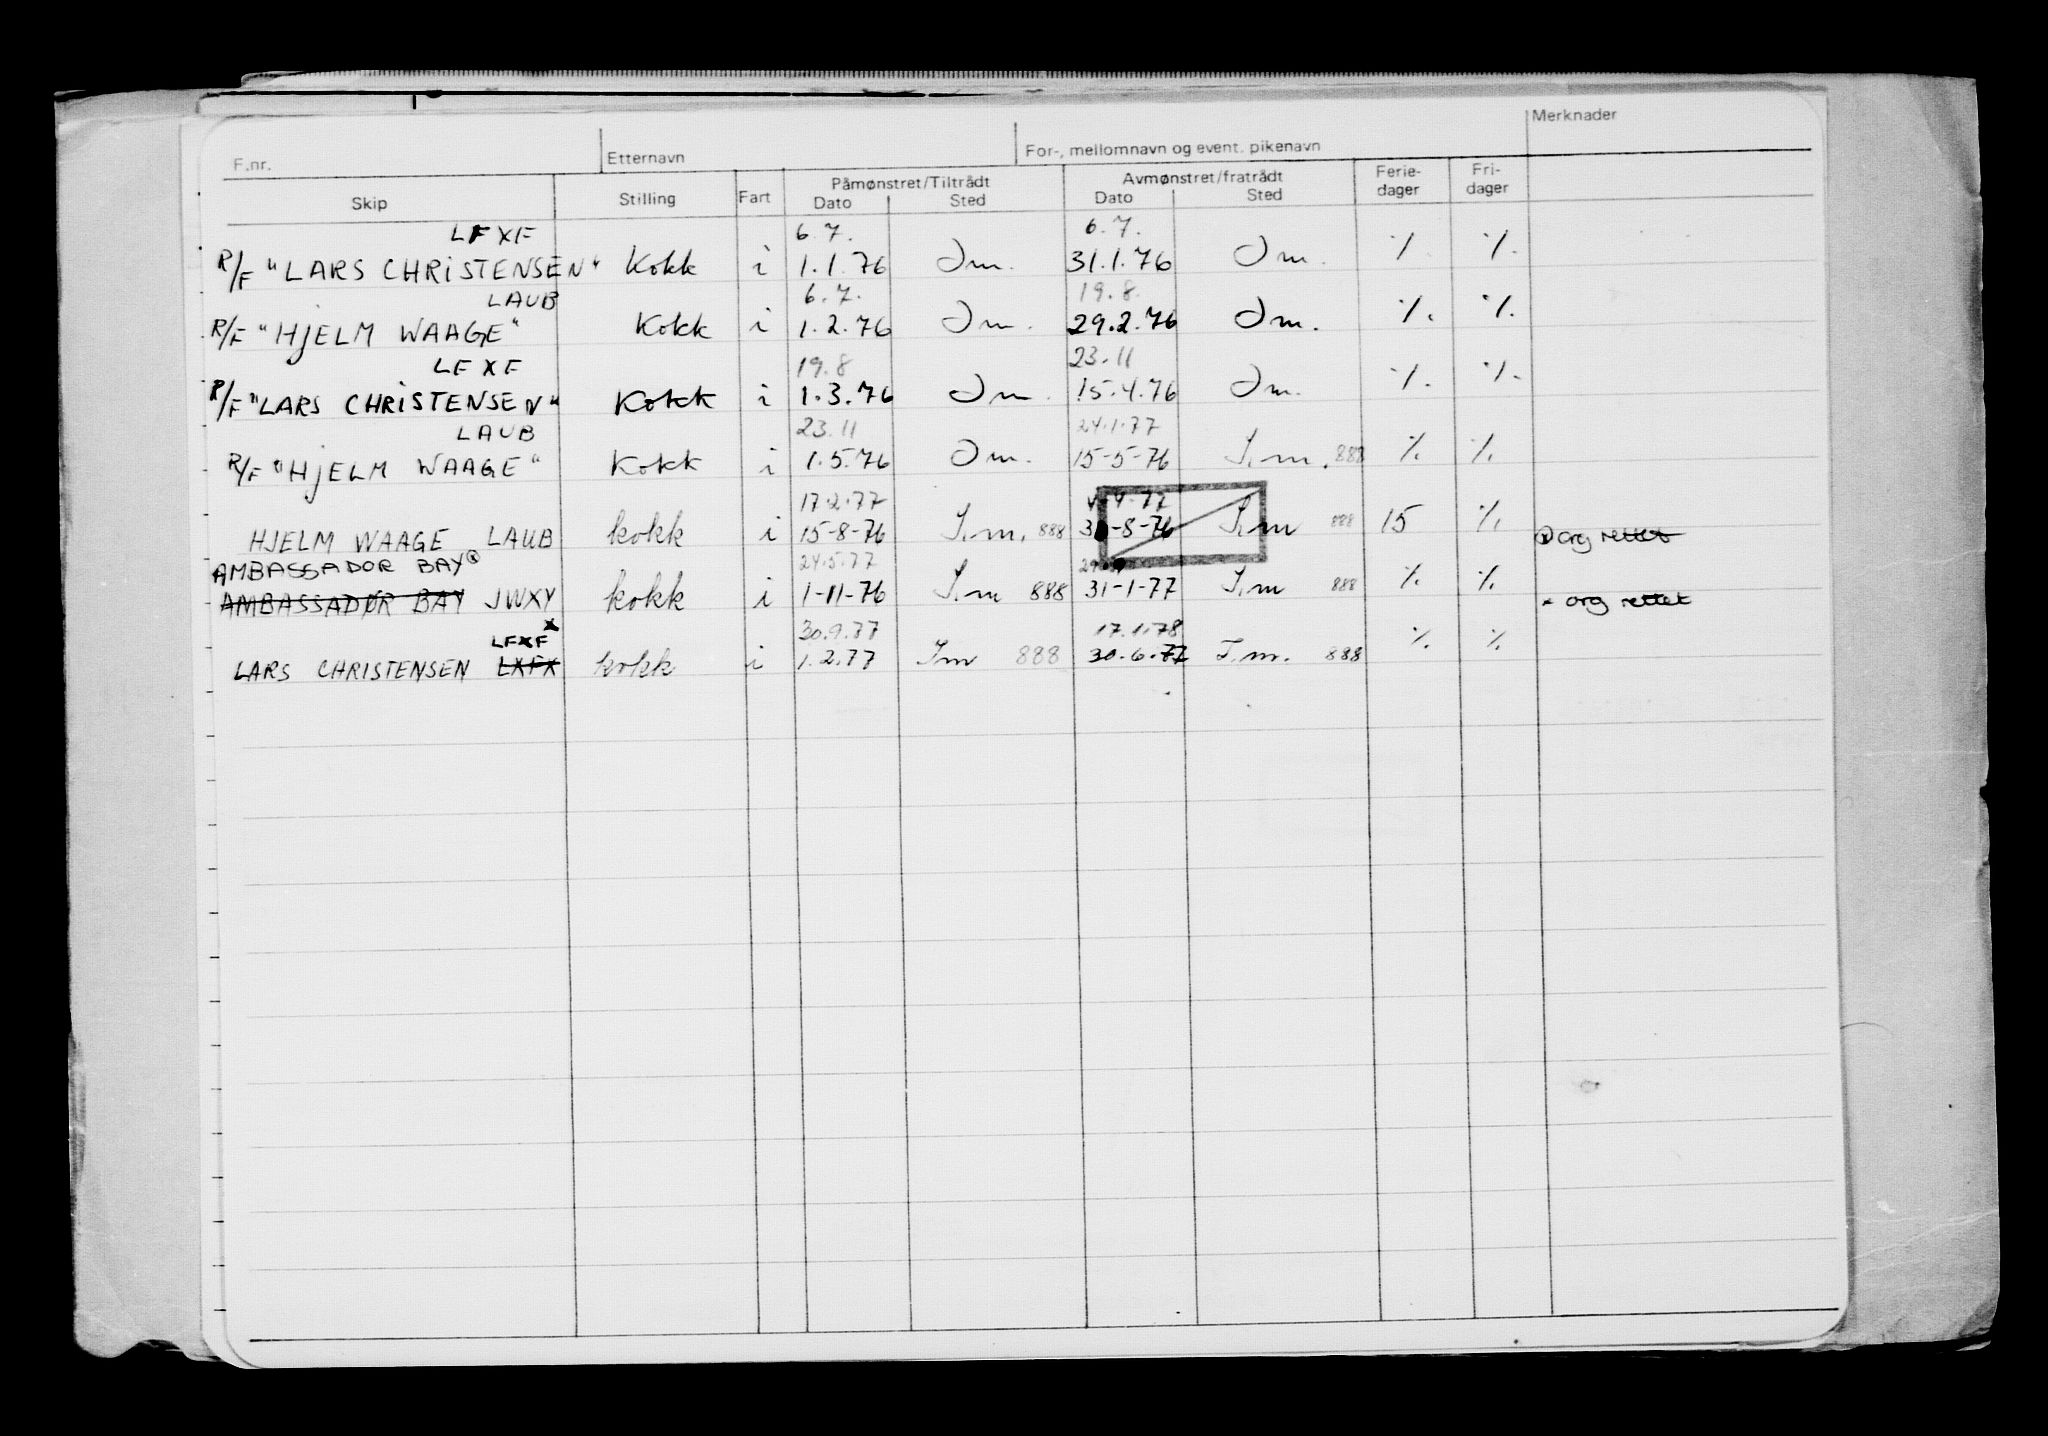 F.nr. Etternavn For-, mellomnavn og event. pikenavn Merknader
Skip Stilling Fart Påmønstret/Tiltrådt Dato Sted Avmønstret/fratrådt Dato Sted Ferie-dager Fri-dager
LFXF 6.7. 6.7.
R/F "LARS CHRiSTENSEN" Kokk i 1.1.76 Im. 31.1.76 Im. ·/. ·/.
LAUB 6.7. 19.8.
R/F "HjELM WAAGE" Kokk i 1.2.76 Im. 29.2.76 Im. ·/. ·/.
LFXF 19.8 23.11
R/F "LARS CHRiSTENSEN" Kokk i 1.3.76 Im. 15.4.76 Im. ·/. ·/.
LAUB 23.11 24.1.77
R/F "HjELM WAAGE" Kokk i 1.5.76 Im. 15-5-76 I.m. 888 ·/. ·/.
17.2.77
HJELM WAAGE LAUB kokk i 15-8-76 I.m. 888 -8-76 I.m 888 15 ·/. org rettet
AMBASSADOR BAY 24.5.77
AMBASSADØR BAY JWXY kokk i 1-11-76 I.m 888 31-1-77 I.m 888 ·/. ·/. org rettet
LFXF x 30.9.77 17.1.78
LARS CHRISTENSEN LXFX kokk i 1.2.77 Im 888 30.6.77 I.m. 888 ·/. ·/.